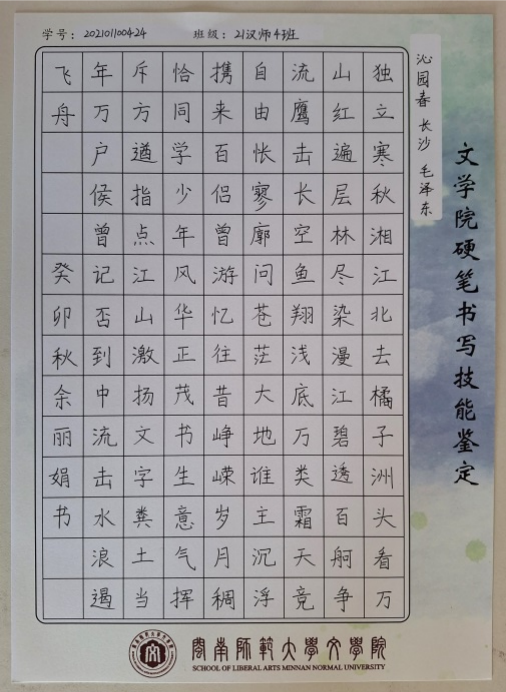 学号：202101100424 班级：21汉师4班
文学院硬笔书写技能鉴定
沁园春 长沙 毛泽东
独立寒秋湘江北去橘子洲头看万
山红遍层林尽染漫江碧透百舸争
流鹰击长空鱼翔浅底万类霜天竞
自由怅寥廓问苍茫大地谁主沉浮
携来百侣曾游忆往昔峥嵘岁月稠
恰同学少年风华正茂书生意气挥
斥方遒指点江山激扬文字粪土当
年万户侯曾记否到中流击水浪遏
飞舟 癸卯秋余丽娟书
閩南師範大學文學院
SCHOOL OF LIBERAL ARTS MINNAN NORMAL UNIVERSITY